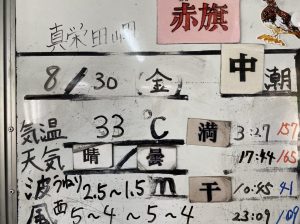 真栄田岬 赤旗
8/30(金) 中潮
気温 33℃ 満 3:27 157
天気 晴/曇 17:44 165
波 うねり 2.5~1.5m 干 10:45 91
風 西 5~4~5~4 23:09 108